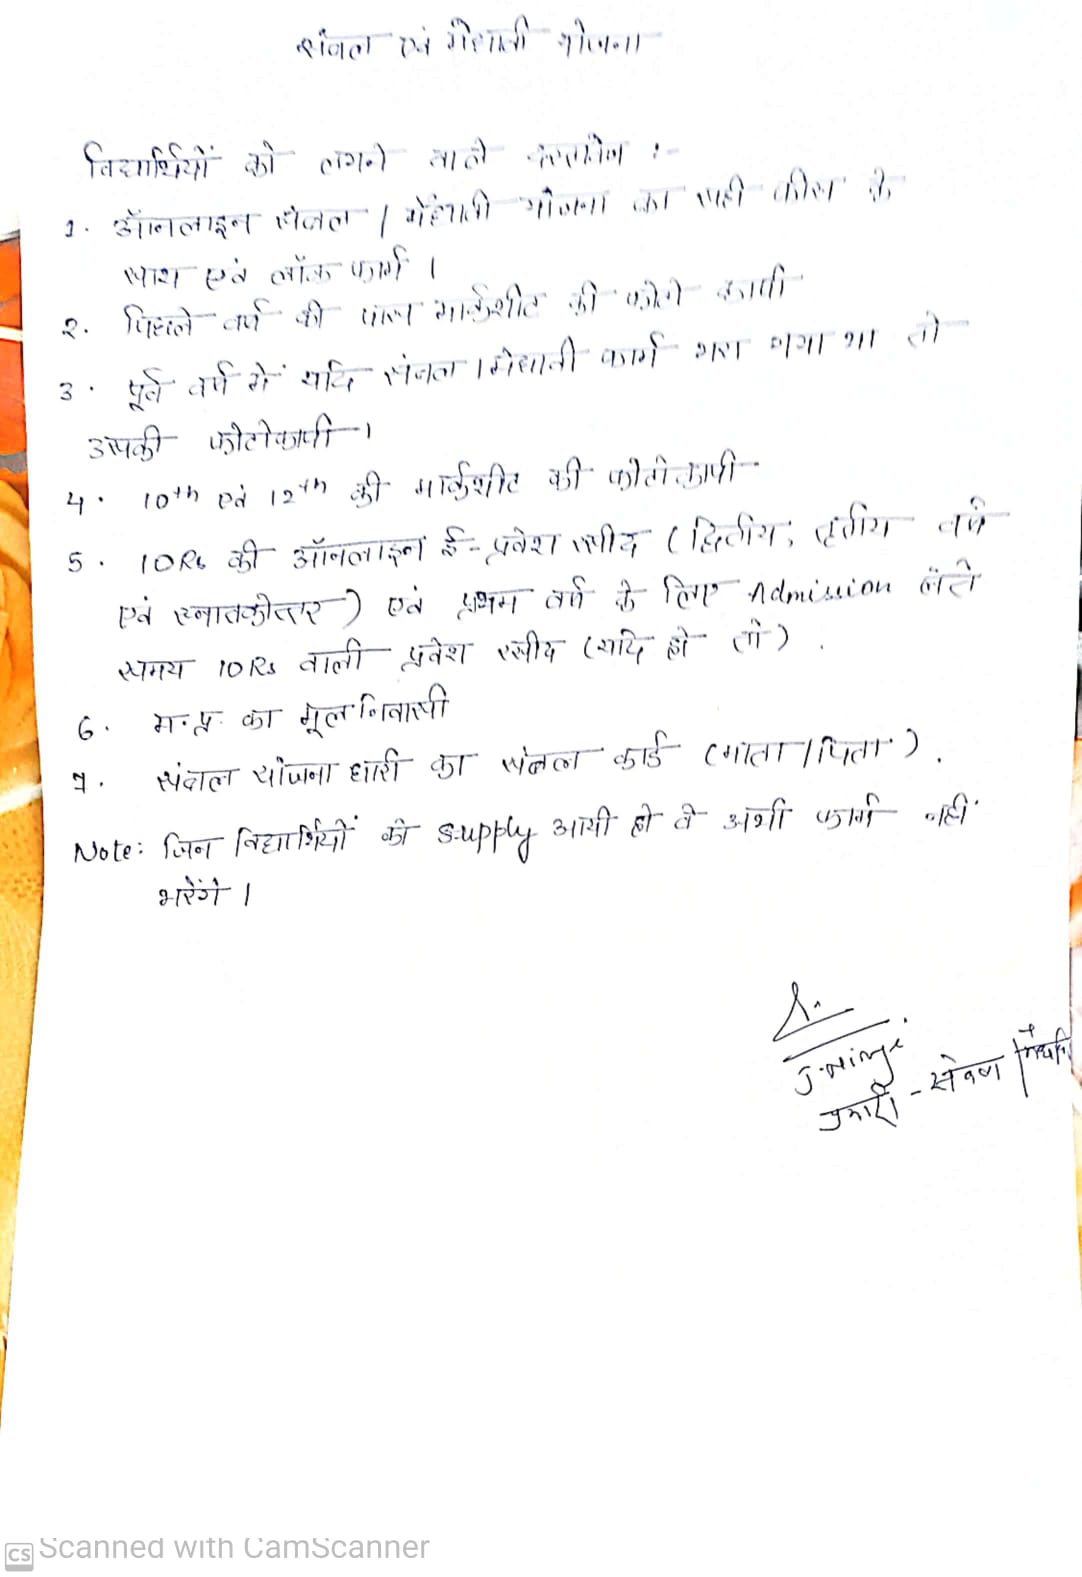 संबल एवं मेधावी योजना
विद्यार्थियों को लगने वाले दस्तावेज :-
1. ऑनलाइन संबल / मेधावी योजना का सही फीस के
साथ एवं लॉक फार्म ।
2. पिछले वर्ष की पास मार्कशीट की फोटो कापी
3. पूर्व वर्ष में यदि संबल / मेधावी फार्म भरा गया था तो
उसकी फोटोकापी ।
4. 10th एवं 12th की मार्कशीट की फोटोकापी
5. 10Rs की ऑनलाइन ई-प्रवेश रसीद (द्वितीय, तृतीय वर्ष
एवं स्नातकोत्तर) एवं प्रथम वर्ष के लिए Admission लेते
समय 10Rs वाली प्रवेश रसीद (यदि हो तो) .
6. म.प्र. का मूल निवासी
7. संबल योजना धारी का संबल कार्ड (माता / पिता) .
Note: जिन विद्यार्थियों को supply आयी हो वे अभी फार्म नहीं
भरेंगे ।
प्रभारी -
CS Scanned with CamScanner